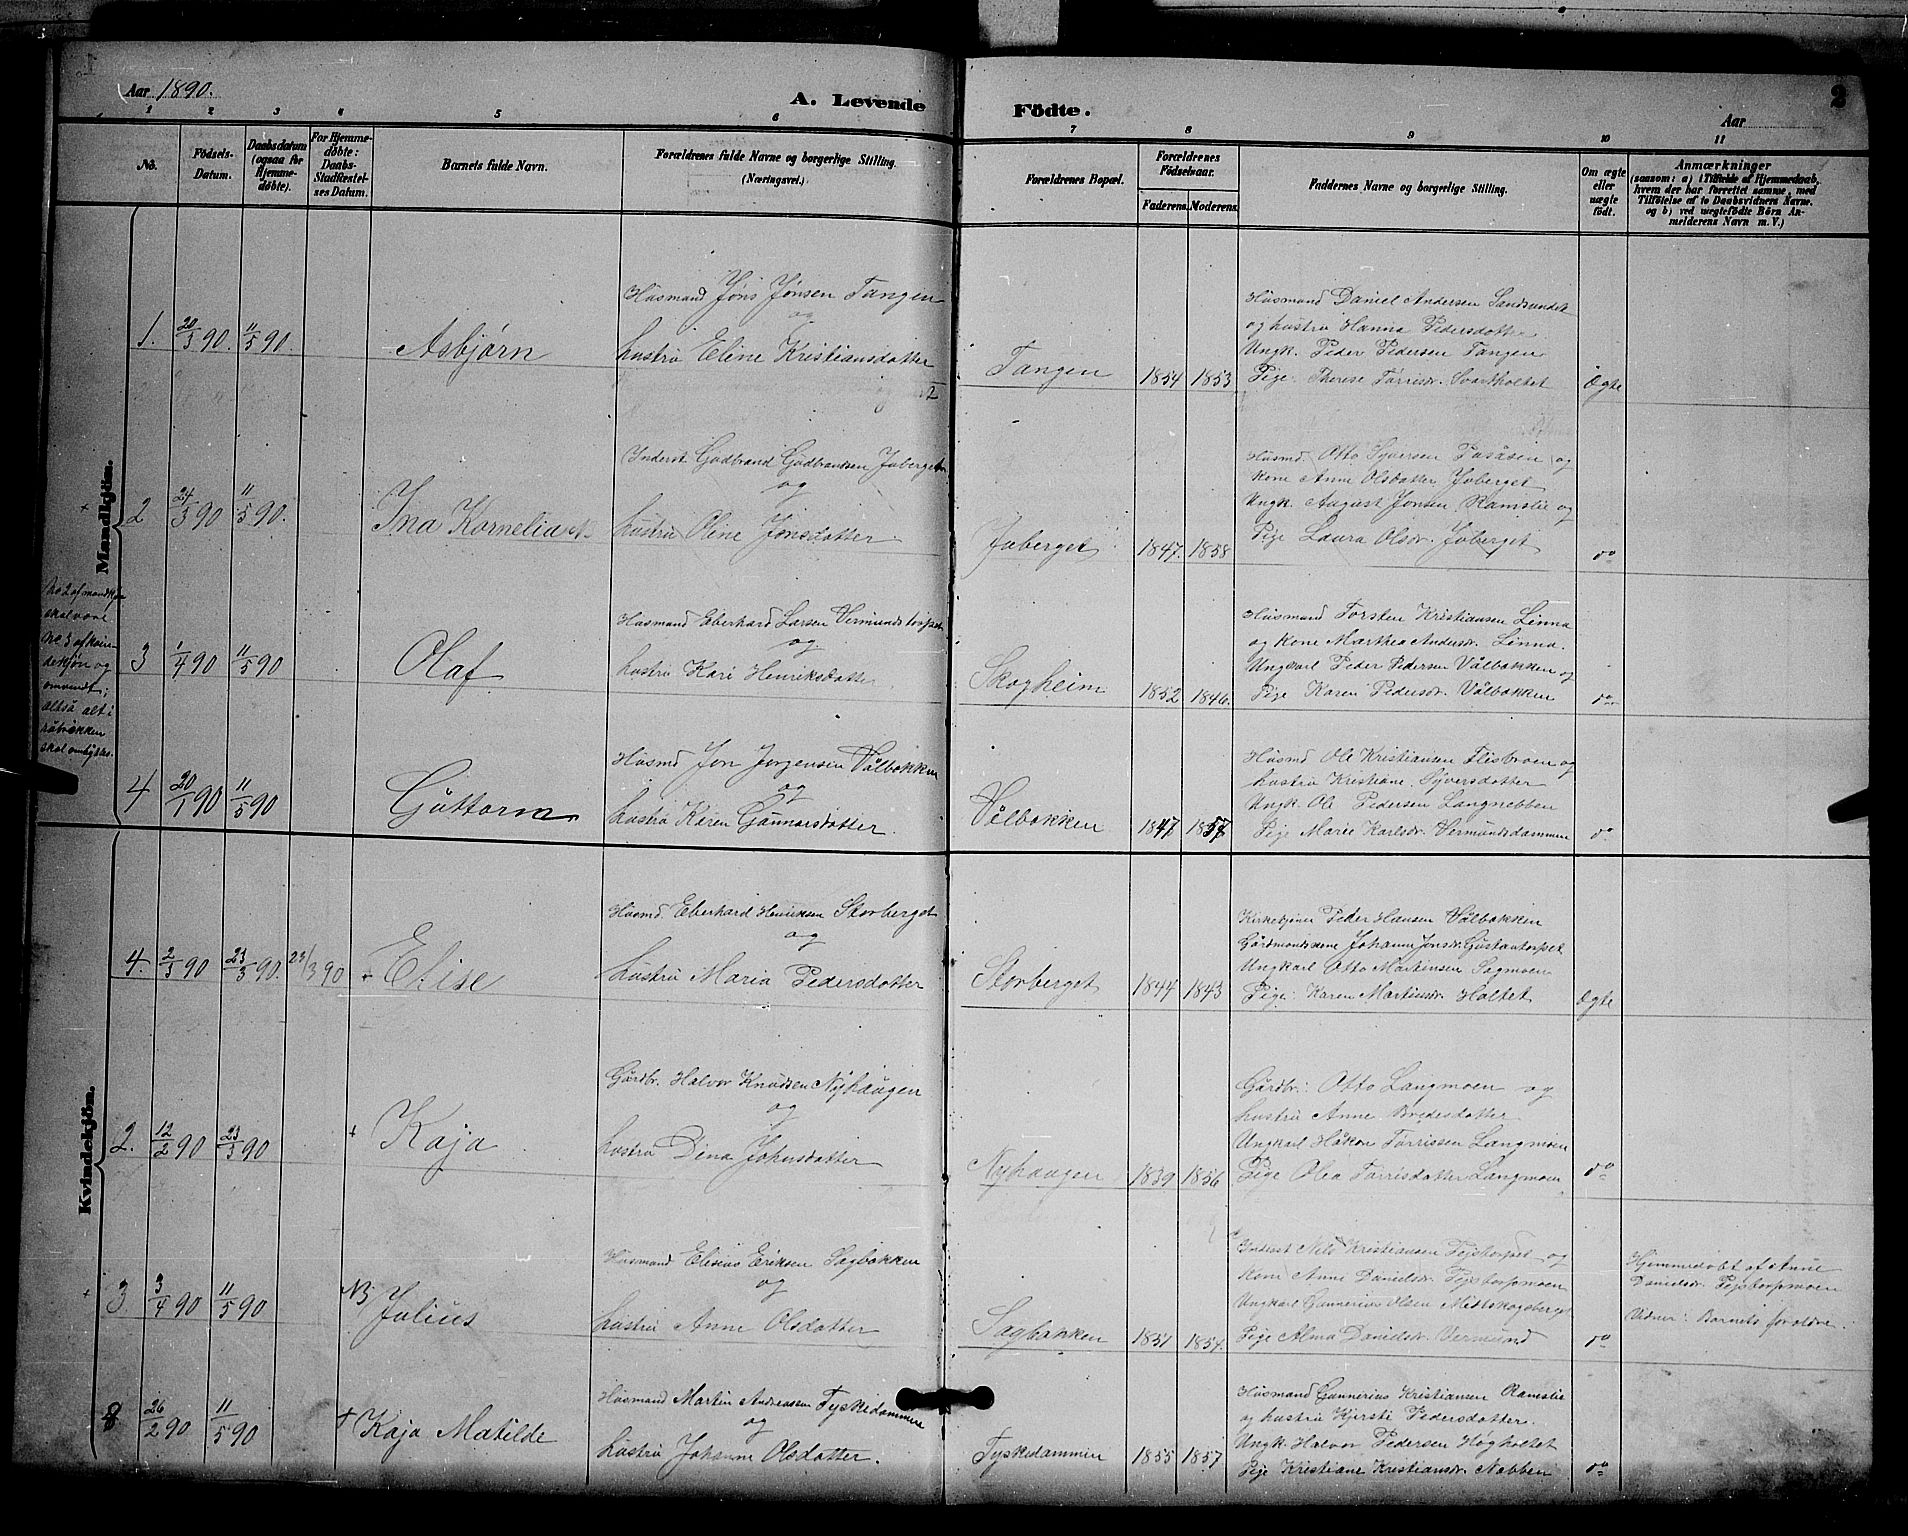 Aar 1890.
A. Levende Födte.
Aar
2
1 2 3 4 5 6 7 8 9 10 11
No.
Födsels-Datum.
Daabsdatum (ogsaa for Hjemme-döbte).
For Hjemme-döbte: Daabs-Stadfæstel-ses Datum.
Barnets fulde Navn.
Forældrenes fulde Navne og borgerlige Stilling.
(Næringsvei.)
Forældrenes Bopæl.
Forældrenes Födselsaar.
Faderens. Moderens.
Faddernes Navne og borgerlige Stilling.
Om ægte eller uægte födt.
Anmærkninger
(saasom: a) i Tilfælde af Hjemmedaab, hvem der har forrettet samme, med Tilföielse af to Daabsvidners Navne. og b) ved uægtefödte Börn An-melderens Navn m. V.)
Mandkjön.
1. 20/3 90. 11/5 90. Asbjørn
Husmand Jöns Jönsen Tangen
og
hustru Eline Kristiansdatter
Tangen 1854 1853
Husmand Daniel Andersen Sandsundet
og hustru Hanna Pedersdatter
Ungk. Peder Pedersen Tangen
Pige: Therese Torrisdr. Svartholtet
Ægte
2 24/3 90 11/5 90. Ina Kornelia
Inderst Gudbrand Gudbrandsen Joberget
og
hustru Oline Jonsdatter
Joberget 1847. 1858
Husmd. Otto Syversen Fasåsen og
kone Anne Olsdatter Joberget
Ungk. August Jonsen Ramslie og
Pige Laura Olsdr. Joberget
do
No 2 af mandkjøn
skal være
No 3 af kvin-
dekjøn og
omvendt;
altså alt i
rubrikken
skal ombyttes.
3 1/4 90 11/5 90 Olaf
Husmand Eberhard Larsen Vermundstorpet
og
hustru Kari Henriksdatter
Skogheim 1852 1846.
Husmand Torsten Kristiansen Linna
og kone Marthea Andersdr. Linna.
Ungkarl Peder Pedersen Vålbakken og
Pige Karen Pedersdr. Vålbakken
do
4 20/1 90 11/5 90 Guttorm
Husmd Jon Jorgensen Vålbakken
og
hustru Karen Gunnarsdatter.
Vålbakken 1847 1857
Husmd Ole Kristiansen Flisbroen og
hustru Kristiane Syversdatter
Ungk. Ole Pedersen Langnebben
Pige Marie Karlsdr. Vermundsdammen
do
Kvindekjön.
4. 2/3 90 23/3 90. 23/3 90 Elise
Husmd. Eberhard Henriksen Storberget
og
hustru Maria Pedersdatter
Storberget 1844 1843
Kirketjener Peder Hansen Vålbakken
Gårdmandskone Johanne Jonsdr. Gustavtorpet
Ungkarl Otto Martinsen Sagmoen
Pige: Karen Martinsdr. Holtet
Ægte
2. 12/2 90 23/3 90 + Kaja
Gårdbr. Halvor Knudsen Nyhaugen
og
hustru Dina Johnsdatter
Nyhaugen 1839 1856
Gårdbr. Otto Langmoen og
hustru Anne Bredesdatter
Ungkarl Håkon Torrissen Langmoen
Pige Olea Torrisdatter Langmoen
do
3. 3/4 90 11/5 90 NB Julius
Husmand Elisius Eriksen Sagbakken
og
hustru Anne Olsdatter
Sagbakken 1851 1854.
Inderst Nils Kristiansen Fejstorpet og
kone Anne Danielsdr. Fejstorpmoen
Ungkarl Gunnerius Olsen Midtskogsberget
Pige Alma Danielsdr. Vermund
do
Hjemmedøbt af Anne
Danielsdr. Fejstorpmoen
Vidner: Barnets forældre.
26/2 90 11/5 90 + Kaja Matilde
Husmand Martin Andreassen Tyskedammen
og
hustru Johanne Olsdatter.
Tyskedammen 1855 1857
Husmand Gunnerius Kristiansen Ramslie
og hustru Kjersti Pedersdatter.
Ungk. Halvor Pedersen Högholtet
Pige Kristiane Kristiansdr. Nebben
do